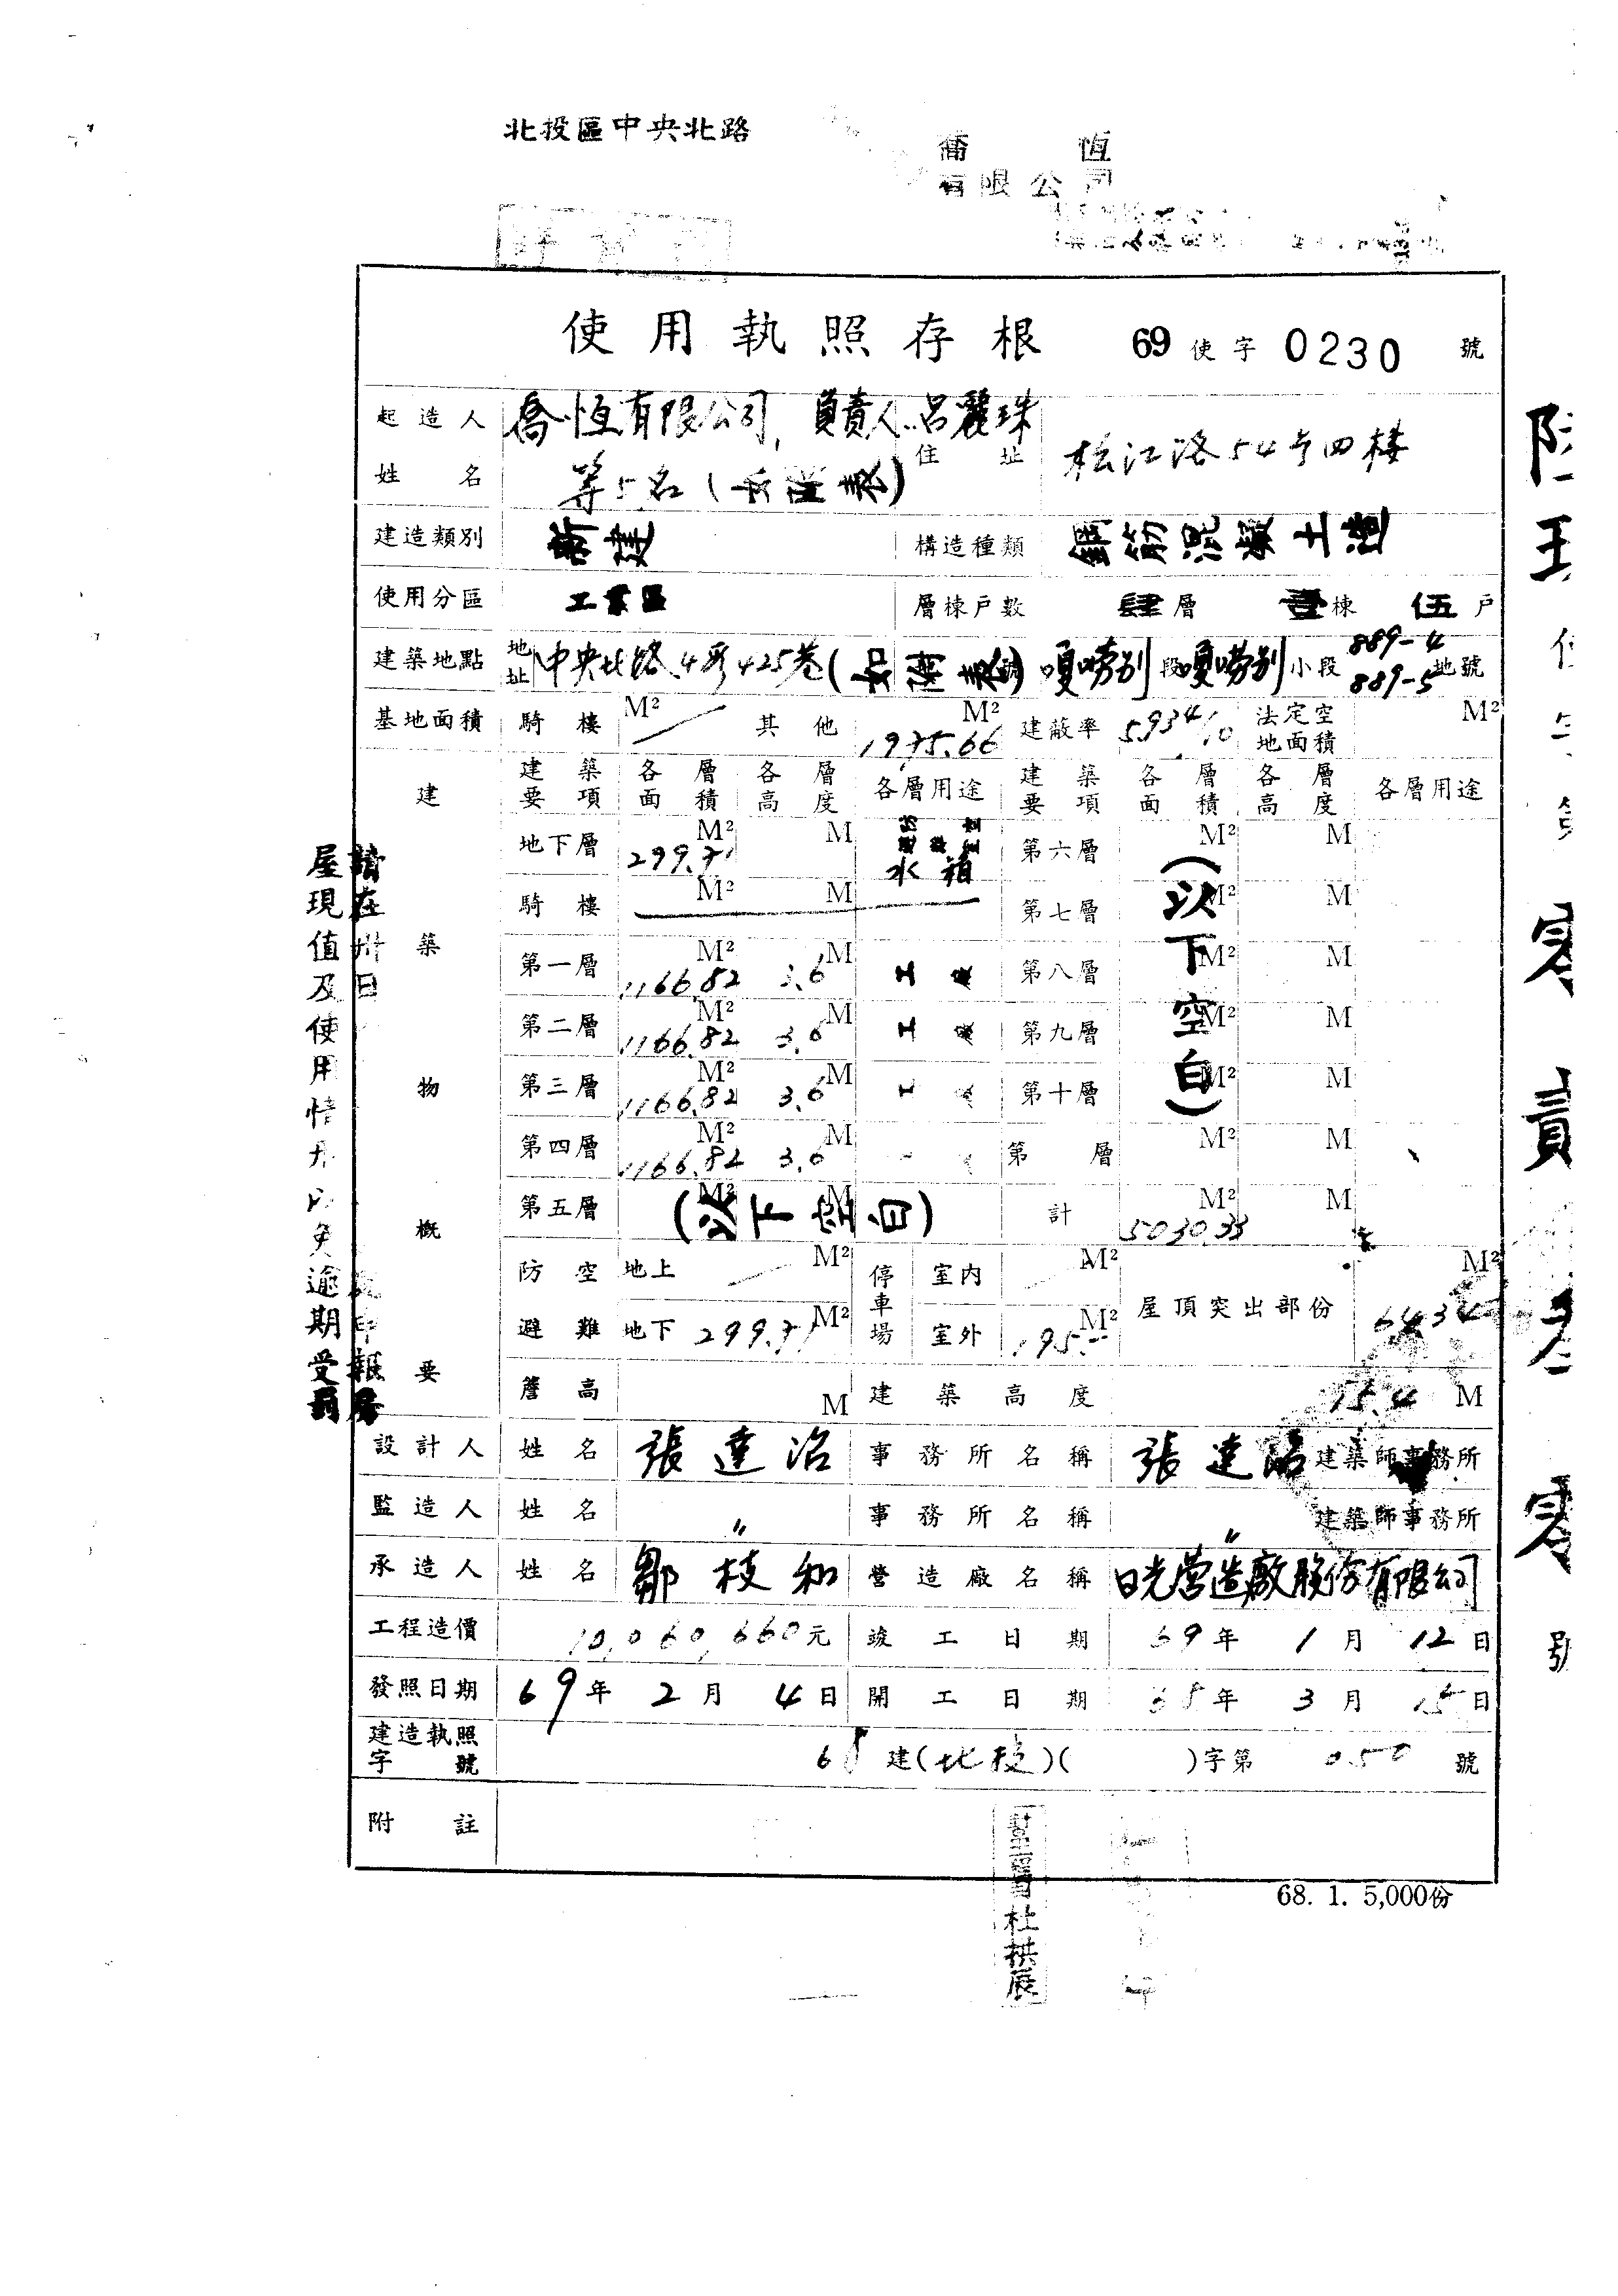 北投區中央北路
喬恆
有限公司
使用執照存根 69使字0230號
起造人姓名 喬恆有限公司, 負責人呂麗珠等5名 住址 松江路54号四樓
建造類別 新建 構造種類 鋼筋混凝土造
使用分區 工業區 層棟戶數 肆層 壹棟 伍戶
建築地點 地址 中央北路4段425巷( 嗄嘮别段嗄嘮别小段889-4 889-5地號
基地面積 騎樓 M² 其他 1975.66 M² 建蔽率 法定空地面積 M²
建築物概要 建築要項 各層面積 各層高度 各層用途 建築要項 各層面積 各層高度 各層用途
地下層 299.71 M² M 水箱 第六層 M² M
騎樓 M² M 第七層 M² M
第一層 1166.82 M² 3.6 M 第八層 M² M
第二層 1166.82 M² 3.6 M 第九層 M² M
第三層 1166.82 M² 3.6 M 第十層 M² M
第四層 1166.82 M² 3.6 M 第 層 M² M
第五層 M² M (以下空白) 計 M² M
(以下空白)
防空避難 地上 M² 停車場 室內 M² 屋頂突出部份 M²
地下 299.71 M² 室外 195.- M²
簷高 M 建築高度 15.4 M
設計人 姓名 張達治 事務所名稱 張達治 建築師事務所
監造人 姓名 〃 事務所名稱 〃 建築師事務所
承造人 姓名 鄒枝和 營造廠名稱 日光營造廠股份有限公司
工程造價 10,060,660元 竣工日期 69年1月12日
發照日期 69年2月4日 開工日期 68年3月15日
建造執照字號 68建(北投)( )字第050號
附註
68. 1. 5,000份
杜拱辰
屋現值及使用情
逾期受罰